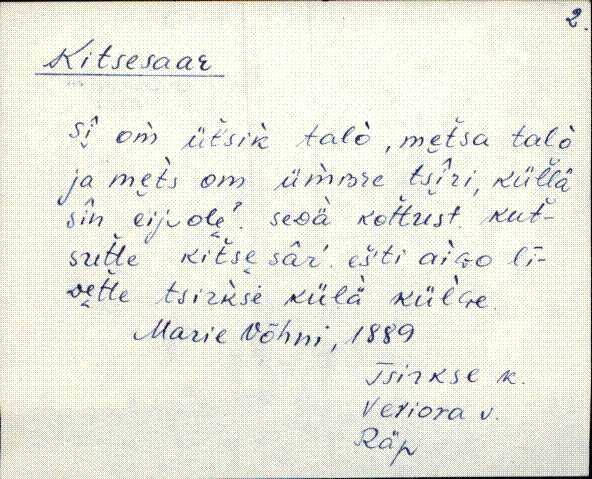 2.
Kitsesaar
sî̬ om̀ üťsìk talò, me̬ťsa talò
ja me̬t̀s om üm̀ʙʀe tsî̬ri, küĺlä
sîn eijᴗole̬ʔ. seᴅä koťtust. kuť-
sutťe kiťse̬ sâr. ešti àiɢo lī-
ᴅe̬tťe tsir̀kse̬ külä̀ kül̀ɢe.
Marie Võhni, 1889
Tsirkse k.
Veriora v.
Räp